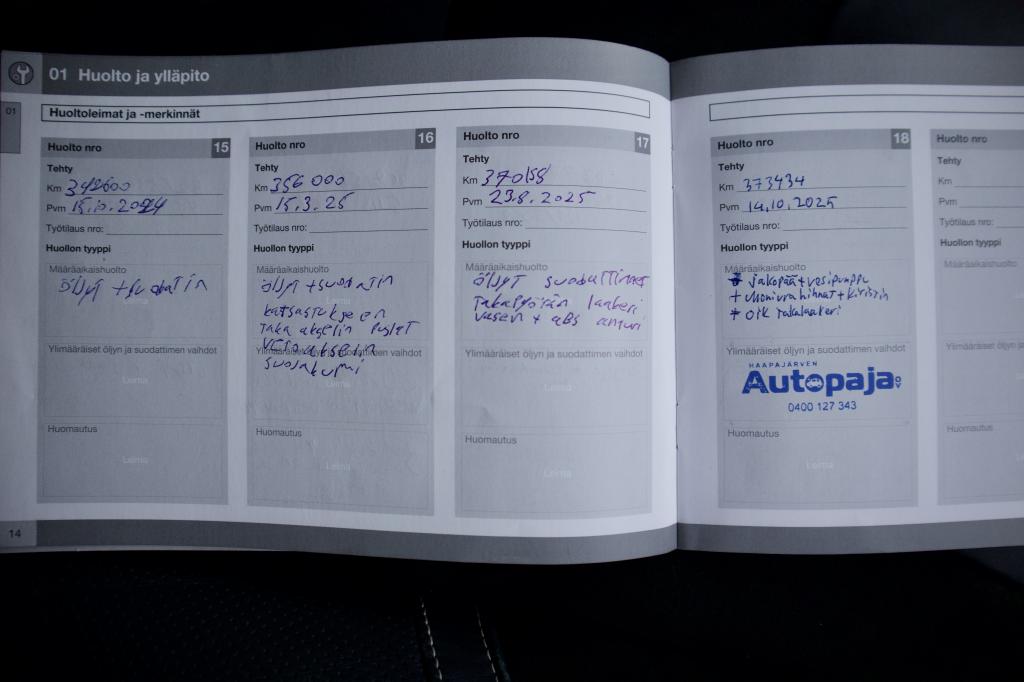 01 Huolto ja ylläpito
01
Huoltoleimat ja -merkinnät
Huolto nro 15
Tehty
Km 342600
Pvm 2024
Työtilaus nro:
Huollon tyyppi
Määräaikaishuolto
öljyt + suodatin
Ylimääräiset öljyn ja suodattimen vaihdot
Leima
Huomautus
Leima
Huolto nro 16
Tehty
Km 356 000
Pvm 15.3.25
Työtilaus nro:
Huollon tyyppi
Määräaikaishuolto
öljyt + suodatin
katsastukseen
taka akselin puslat
vetoakselin
Ylimääräiset öljyn ja suodattimen vaihdot
suojakumi
Leima
Huomautus
Leima
Huolto nro 17
Tehty
Km 370158
Pvm 23.8.2025
Työtilaus nro:
Huollon tyyppi
Määräaikaishuolto
öljyt suodattimet
takapyörän laakeri
vasen + abs anturi
Ylimääräiset öljyn ja suodattimen vaihdot
Leima
Huomautus
Leima
Huolto nro 18
Tehty
Km 373434
Pvm 14.10.2025
Työtilaus nro:
Huollon tyyppi
Määräaikaishuolto
+ jakopää + vesipumppu
+ moniurahihnat + kiristin
+ oik takalaakeri
Ylimääräiset öljyn ja suodattimen vaihdot
HAAPAJÄRVEN
Autopaja OY
0400 127 343
Huomautus
Leima
Huolto nro
Tehty
Km
Pvm
Työtilaus nro:
Huollon tyyppi
Määräaikaishuolto
Ylimääräiset öljyn
Huomautus
14